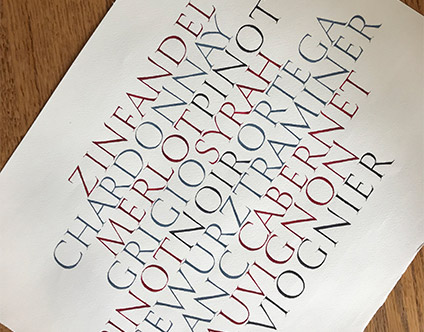 ZINFANDEL
CHARDONNAY
MERLOT PINOT
GRIGIO SYRAH
PINOT NOIR ORTEGA
EWURZTRAMINER
ANC CABERNET
AUVIGNON
VIOGNIER